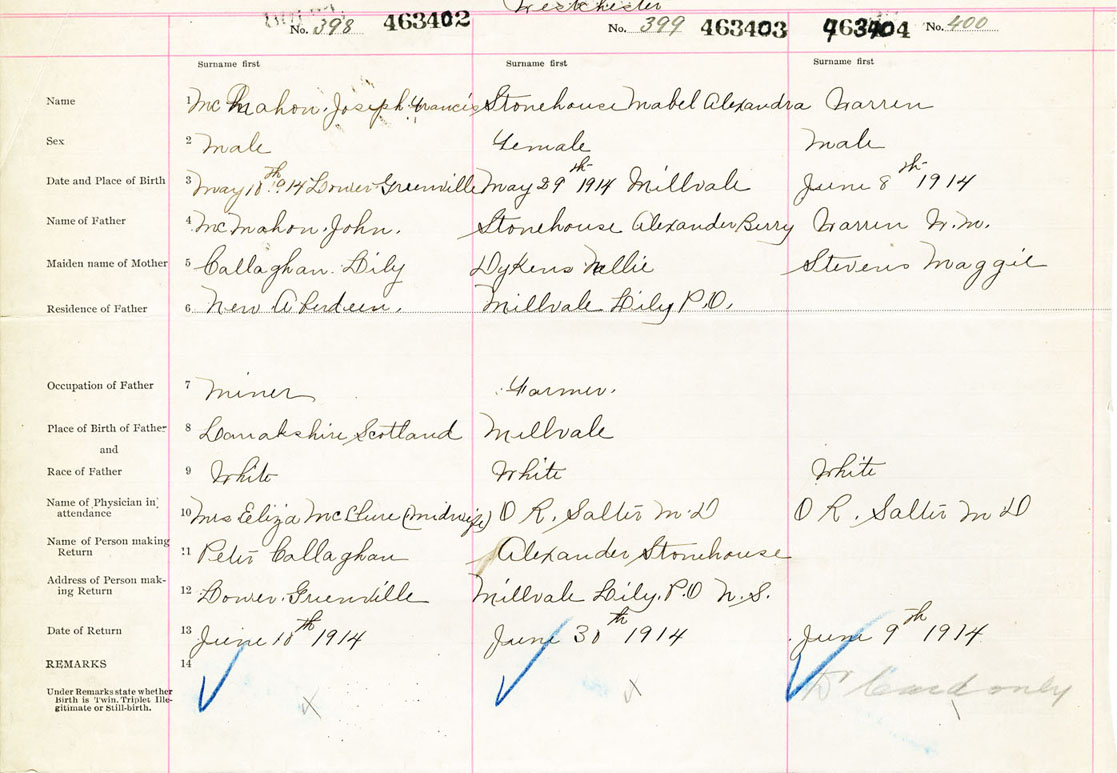 Westchester
No. 398 463402 No. 399 463403 463404 No. 400
Surname first Surname first Surname first
Name 1 McMahon, Joseph Francis Stonehouse Mabel Alexandra Warren
Sex 2 Male Female Male
Date and Place of Birth 3 May 18th 1914 Lower Greenville May 29th 1914 Millvale June 8th 1914
Name of Father 4 McMahon, John. Stonehouse Alexander Berry Warren W.M.
Maiden name of Mother 5 Callaghan. Lily Dykens Nellie Stevens Maggie
Residence of Father 6 New Aberdeen. Millvale Lily P.O.
Occupation of Father 7 Miner Farmer.
Place of Birth of Father 8 Lanakshire, Scotland Millvale
and
Race of Father 9 White White White
Name of Physician in
attendance 10 Mrs Eliza McClure (midwife) O R. Salter M D O R. Salter M D
Name of Person making
Return 11 Peter Callaghan Alexander Stonehouse
Address of Person mak-
ing Return 12 Lower Greenville Millvale Lily, P.O N.S.
Date of Return 13 June 10th 1914 June 30th 1914 June 9th 1914
REMARKS 14
Under Remarks state whether
Birth is Twin, Triplet Ille-
gitimate or Still-birth.
Dr Card only